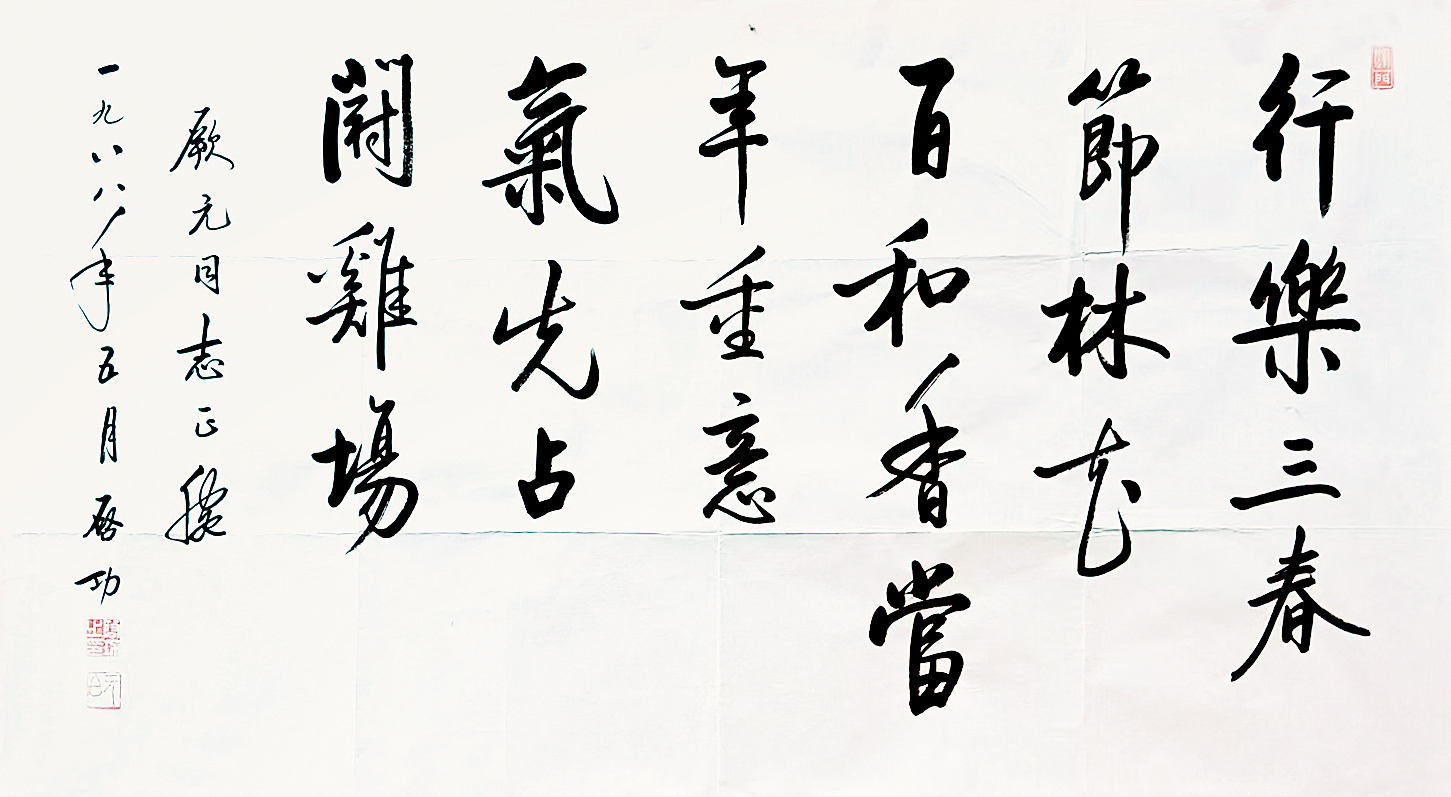 行樂三春
節林花
百和香當
年重意
氣先占
鬭雞場
厥元同志正腕
一九八八年五月啓功